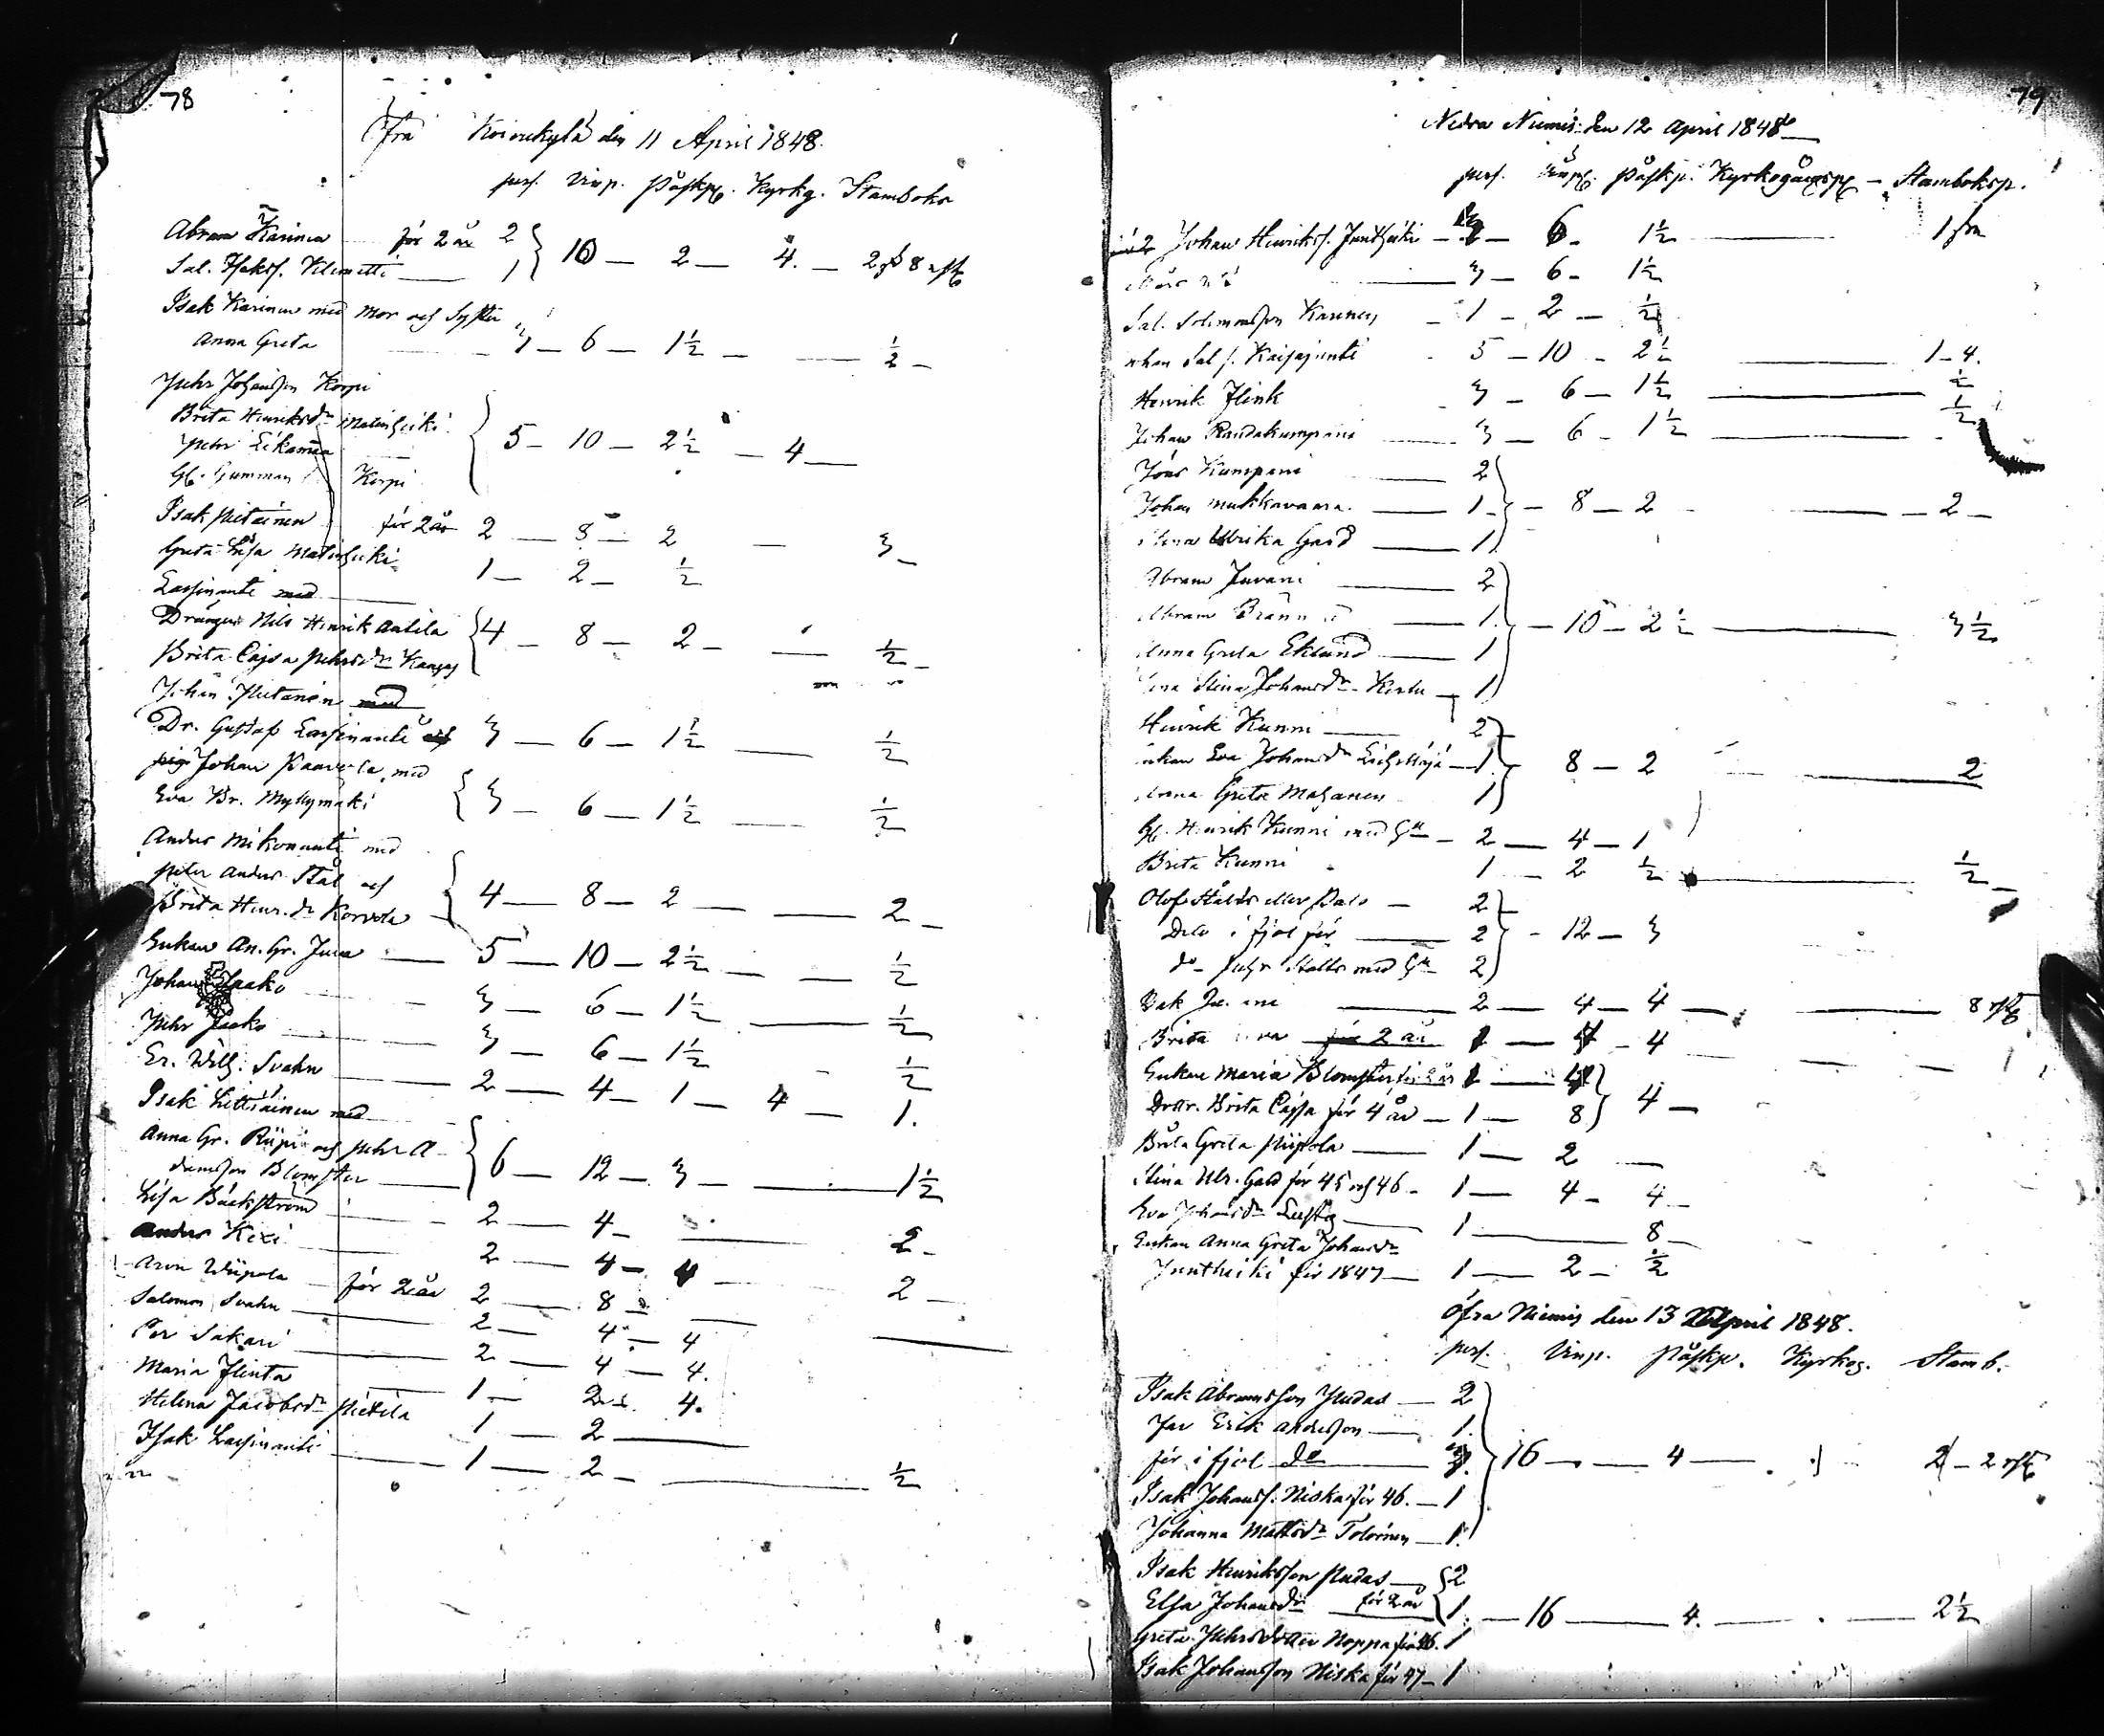 78
från Koivukylä den 11 April 1848.
pers. Vinp. påskp. Kyrkg. Stamboks
Abram Karinen för 2 år 2
10 — 2 — 4. — 2
Sal. Isaks. 1
Isak Karinen med Mor och Syster
Anna Greta 3 — 6 — 1½ — ½ —
Pehr Johansson Korpi
Brita Henriksdr Matinheiki
Pehr
5 — 10 — 2½ — 4 —
Gl. Gumman Korpi
Isak Pietäinen för 2 år 2 — 8 — 2 — 3 —
Greta Lisa Matinheiki 1 — 2 — ½
Lassinanti med
Drängen Nils Henrik Aalila 4 — 8 — 2 — ½ —
Brita Cajsa Pehrsdr Kangas
Johan Pietänen med
Dr. Gustaf Lassinanti och 3 — 6 — 1½ — ½
pig Johan Paavola med
Eva Br. Myllymäki 3 — 6 — 1½ — ½
Anders Mikonanti med
Peter Anders Stål och 4 — 8 — 2 — 2 —
Brita Henr.dr
Enkan An. Gr. Juva — 5 — 10 — 2½ — ½
Johan Jaako 3 — 6 — 1½ — ½
Pehr Jaako 3 — 6 — 1½ — ½
Er. Wilh. Svahn 2 — 4 — 1 — 4 — 1.
Isak med
Anna Gr. Riipi och Pehr A-
6 — 12 — 3 — 1½
damsson Blomster
Lisa Bäckström 2 — 4 — 2 —
Anders Kexi 2 — 4 — 4 — 2 —
Aron Wiipola för 2 år 2 — 8 —
Salomon Svahn 2 — 4 — 4
Per Sakari 2 — 4 — 4.
Maria Flinta 1 — 2 — 4.
Helena Jacobsdr Pietilä 1 — 2 —
Isak Lassinanti 1 — 2 — ½
79
Nedra Niemis den 12 April 1848
pers. Vinp. påskp. Kyrkogångsp — Stamboksp.
Johan Henrikss. Juntheiki — 3 — 6 — 1½ — 1
3 — 6 — 1½
Sal. Salomonsson Karinen — 1 — 2 — ½
Johan Sal s. Kaisajunti — 5 — 10 — 2½ — 1 — 4.
Henrik Flink 3 — 6 — 1½ — ½
Johan Raudakumpani 3 — 6 — 1½ — ½
Jöns Kumpani 2
Johan Mukkavaara — 1 — 8 — 2 — 2 —
Stina Ulrika Gard — 1
Abram Juvani — 2
Abram Brännare — 1 — 10 — 2½ — 3½
Anna Greta Eklund — 1
Stina Johansdr 1
Henrik Kunni — 2
Enkan Eva Johansdr — 1 8 — 2 — 2
Anna Greta 1
Gl. Henrik Kunni med — 2 — 4 — 1
Brita Kunni 1 — 2 ½ — ½ —
Olof Ståldr eller Palo — 2
Dito i fjol för — 2 — 12 — 3
do Pehr Ståldr med 2
Isak — 2 — 4 — 4 — 8
Brita för 2 år 1 — 4 — 4
Enkan Maria Blomster för 2 år 1 — 4
4 —
Dottr. Brita Cajsa för 4 år — 1 — 8
Brita Greta Piipola — 1 — 2 —
Stina Ulr. Gard för 45 och 46 — 1 — 4 — 4 —
Eva Johansdr 1 — 8 —
Enkan Anna Greta Johansdr
Juntheiki för 1847 — 1 — 2 — ½
Öfra Niemis den 13 April 1848.
pers. Vinp. påskp. Kyrkog. Stamb.
Isak Abramsson Pudas — 2
Far Erik Andersson — 1.
för i fjol do 16 — 4 — 2 — 2
Isak Johanss. Niska för 46. — 1
Johanna Mattsdr Tolonen — 1.
Isak Henriksson Pudas — 2
Elsa Johansdr för 2 år 1. — 16 — 4. — 2½
Greta Pehrsdotter Noppa för 46. 1
Isak Johansson Niska för 47 — 1